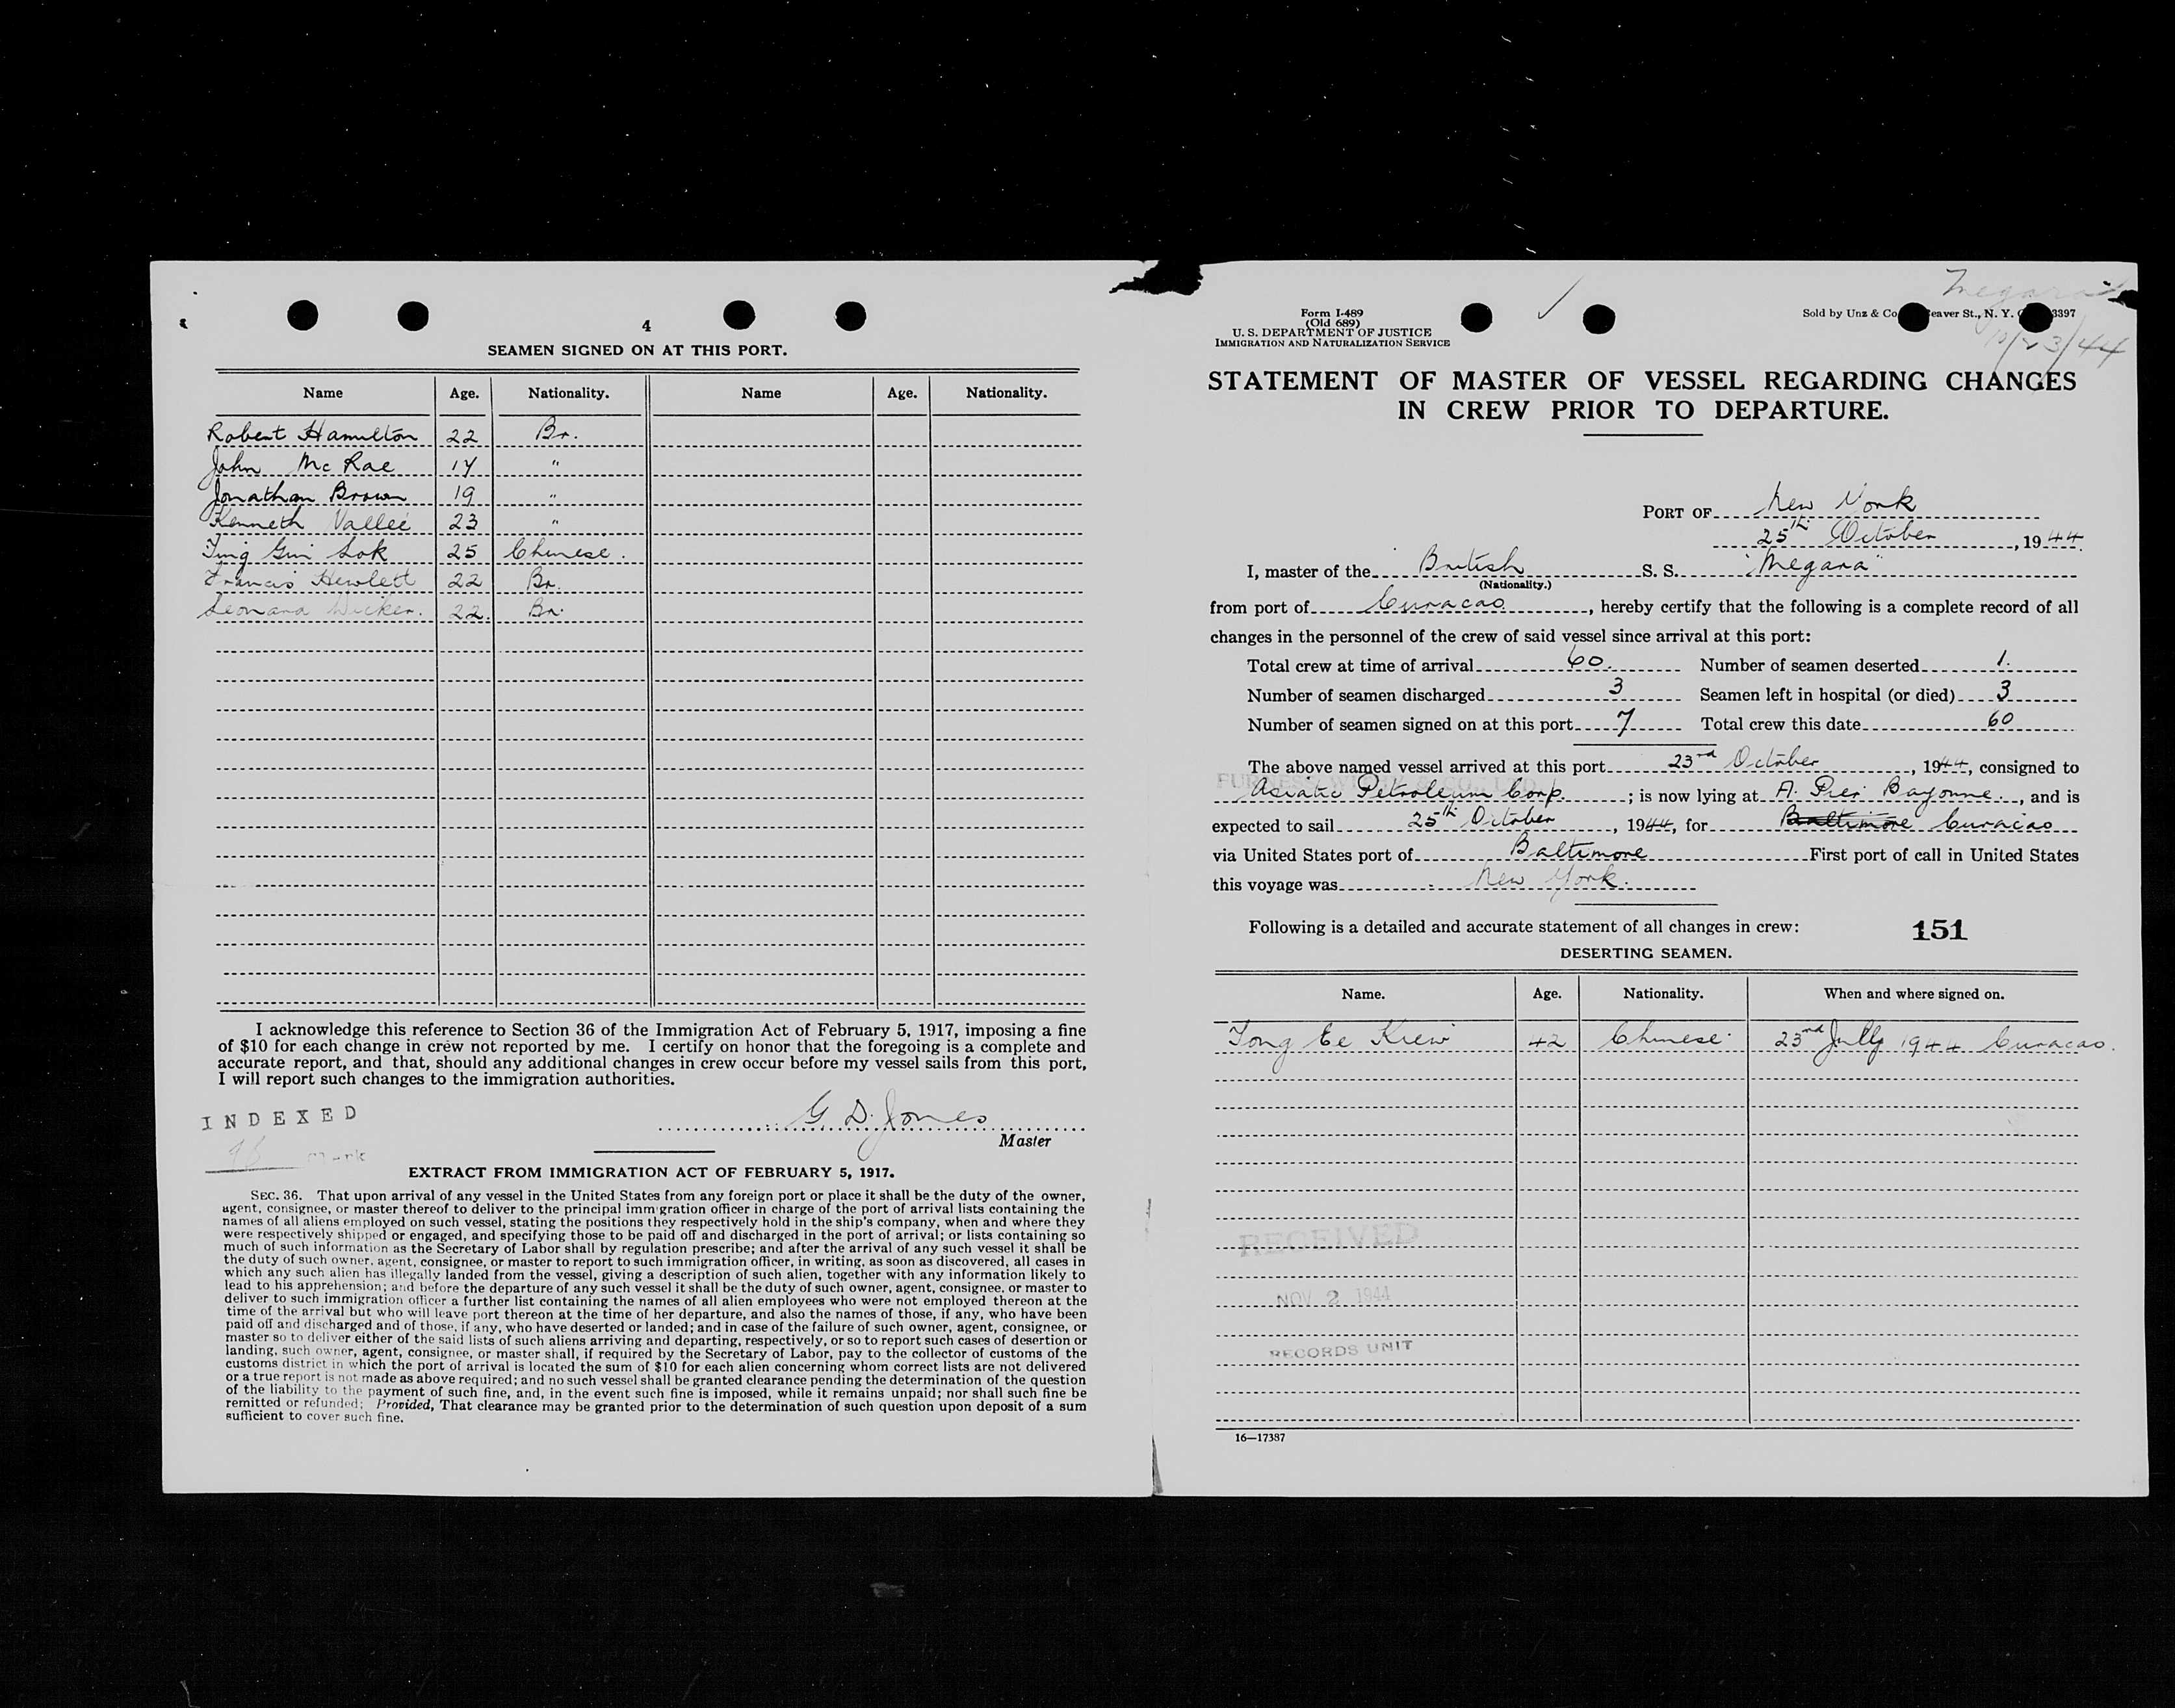 4
SEAMEN SIGNED ON AT THIS PORT.
Name Age. Nationality. Name Age. Nationality.
Robert Hamilton 22 Br.
John McRae 17 "
Jonathan Brown 19 "
Kenneth Vallee 23 "
25 Chinese.
Francis Hewlett 22 Br.
Leonard 22. Br.
I acknowledge this reference to Section 36 of the Immigration Act of February 5, 1917, imposing a fine
of $10 for each change in crew not reported by me. I certify on honor that the foregoing is a complete and
accurate report, and that, should any additional changes in crew occur before my vessel sails from this port,
I will report such changes to the immigration authorities.
INDEXED
G. D. Jones
Master
EXTRACT FROM IMMIGRATION ACT OF FEBRUARY 5, 1917.
SEC. 36. That upon arrival of any vessel in the United States from any foreign port or place it shall be the duty of the owner,
agent, consignee, or master thereof to deliver to the principal immigration officer in charge of the port of arrival lists containing the
names of all aliens employed on such vessel, stating the positions they respectively hold in the ship's company, when and where they
were respectively shipped or engaged, and specifying those to be paid off and discharged in the port of arrival; or lists containing so
much of such information as the Secretary of Labor shall by regulation prescribe; and after the arrival of any such vessel it shall be
the duty of such owner, agent, consignee, or master to report to such immigration officer, in writing, as soon as discovered, all cases in
which any such alien has illegally landed from the vessel, giving a description of such alien, together with any information likely to
lead to his apprehension; and before the departure of any such vessel it shall be the duty of such owner, agent, consignee, or master to
deliver to such immigration officer a further list containing the names of all alien employees who were not employed thereon at the
time of the arrival but who will leave port thereon at the time of her departure, and also the names of those, if any, who have been
paid off and discharged and of those, if any, who have deserted or landed; and in case of the failure of such owner, agent, consignee, or
master so to deliver either of the said lists of such aliens arriving and departing, respectively, or so to report such cases of desertion or
landing, such owner, agent, consignee, or master shall, if required by the Secretary of Labor, pay to the collector of customs of the
customs district in which the port of arrival is located the sum of $10 for each alien concerning whom correct lists are not delivered
or a true report is not made as above required; and no such vessel shall be granted clearance pending the determination of the question
of the liability to the payment of such fine, and, in the event such fine is imposed, while it remains unpaid; nor shall such fine be
remitted or refunded; Provided, That clearance may be granted prior to the determination of such question upon deposit of a sum
sufficient to cover such fine.
Megara
10/23/44
Form I-489
(Old 689)
U. S. DEPARTMENT OF JUSTICE
IMMIGRATION AND NATURALIZATION SERVICE
Sold by Unz & Co eaver St., N. Y. 3397
STATEMENT OF MASTER OF VESSEL REGARDING CHANGES
IN CREW PRIOR TO DEPARTURE.
PORT OF New York
25th October, 1944
I, master of the British S. S. "Megara"
(Nationality.)
from port of Curacao, hereby certify that the following is a complete record of all
changes in the personnel of the crew of said vessel since arrival at this port:
Total crew at time of arrival 60. Number of seamen deserted 1.
Number of seamen discharged 3 Seamen left in hospital (or died) 3
Number of seamen signed on at this port 7 Total crew this date 60
The above named vessel arrived at this port 23rd October, 1944, consigned to
Asiatic Petroleum Corp.; is now lying at A. Pier Bayonne., and is
expected to sail 25th October, 1944, for Baltimore Curacao
via United States port of Baltimore First port of call in United States
this voyage was New York.
Following is a detailed and accurate statement of all changes in crew: 151
DESERTING SEAMEN.
Name. Age. Nationality. When and where signed on.
Tong Ee Kiew 42 Chinese 23rd July 1944 Curacao.
RECEIVED
NOV 2 1944
RECORDS UNIT
16—17387